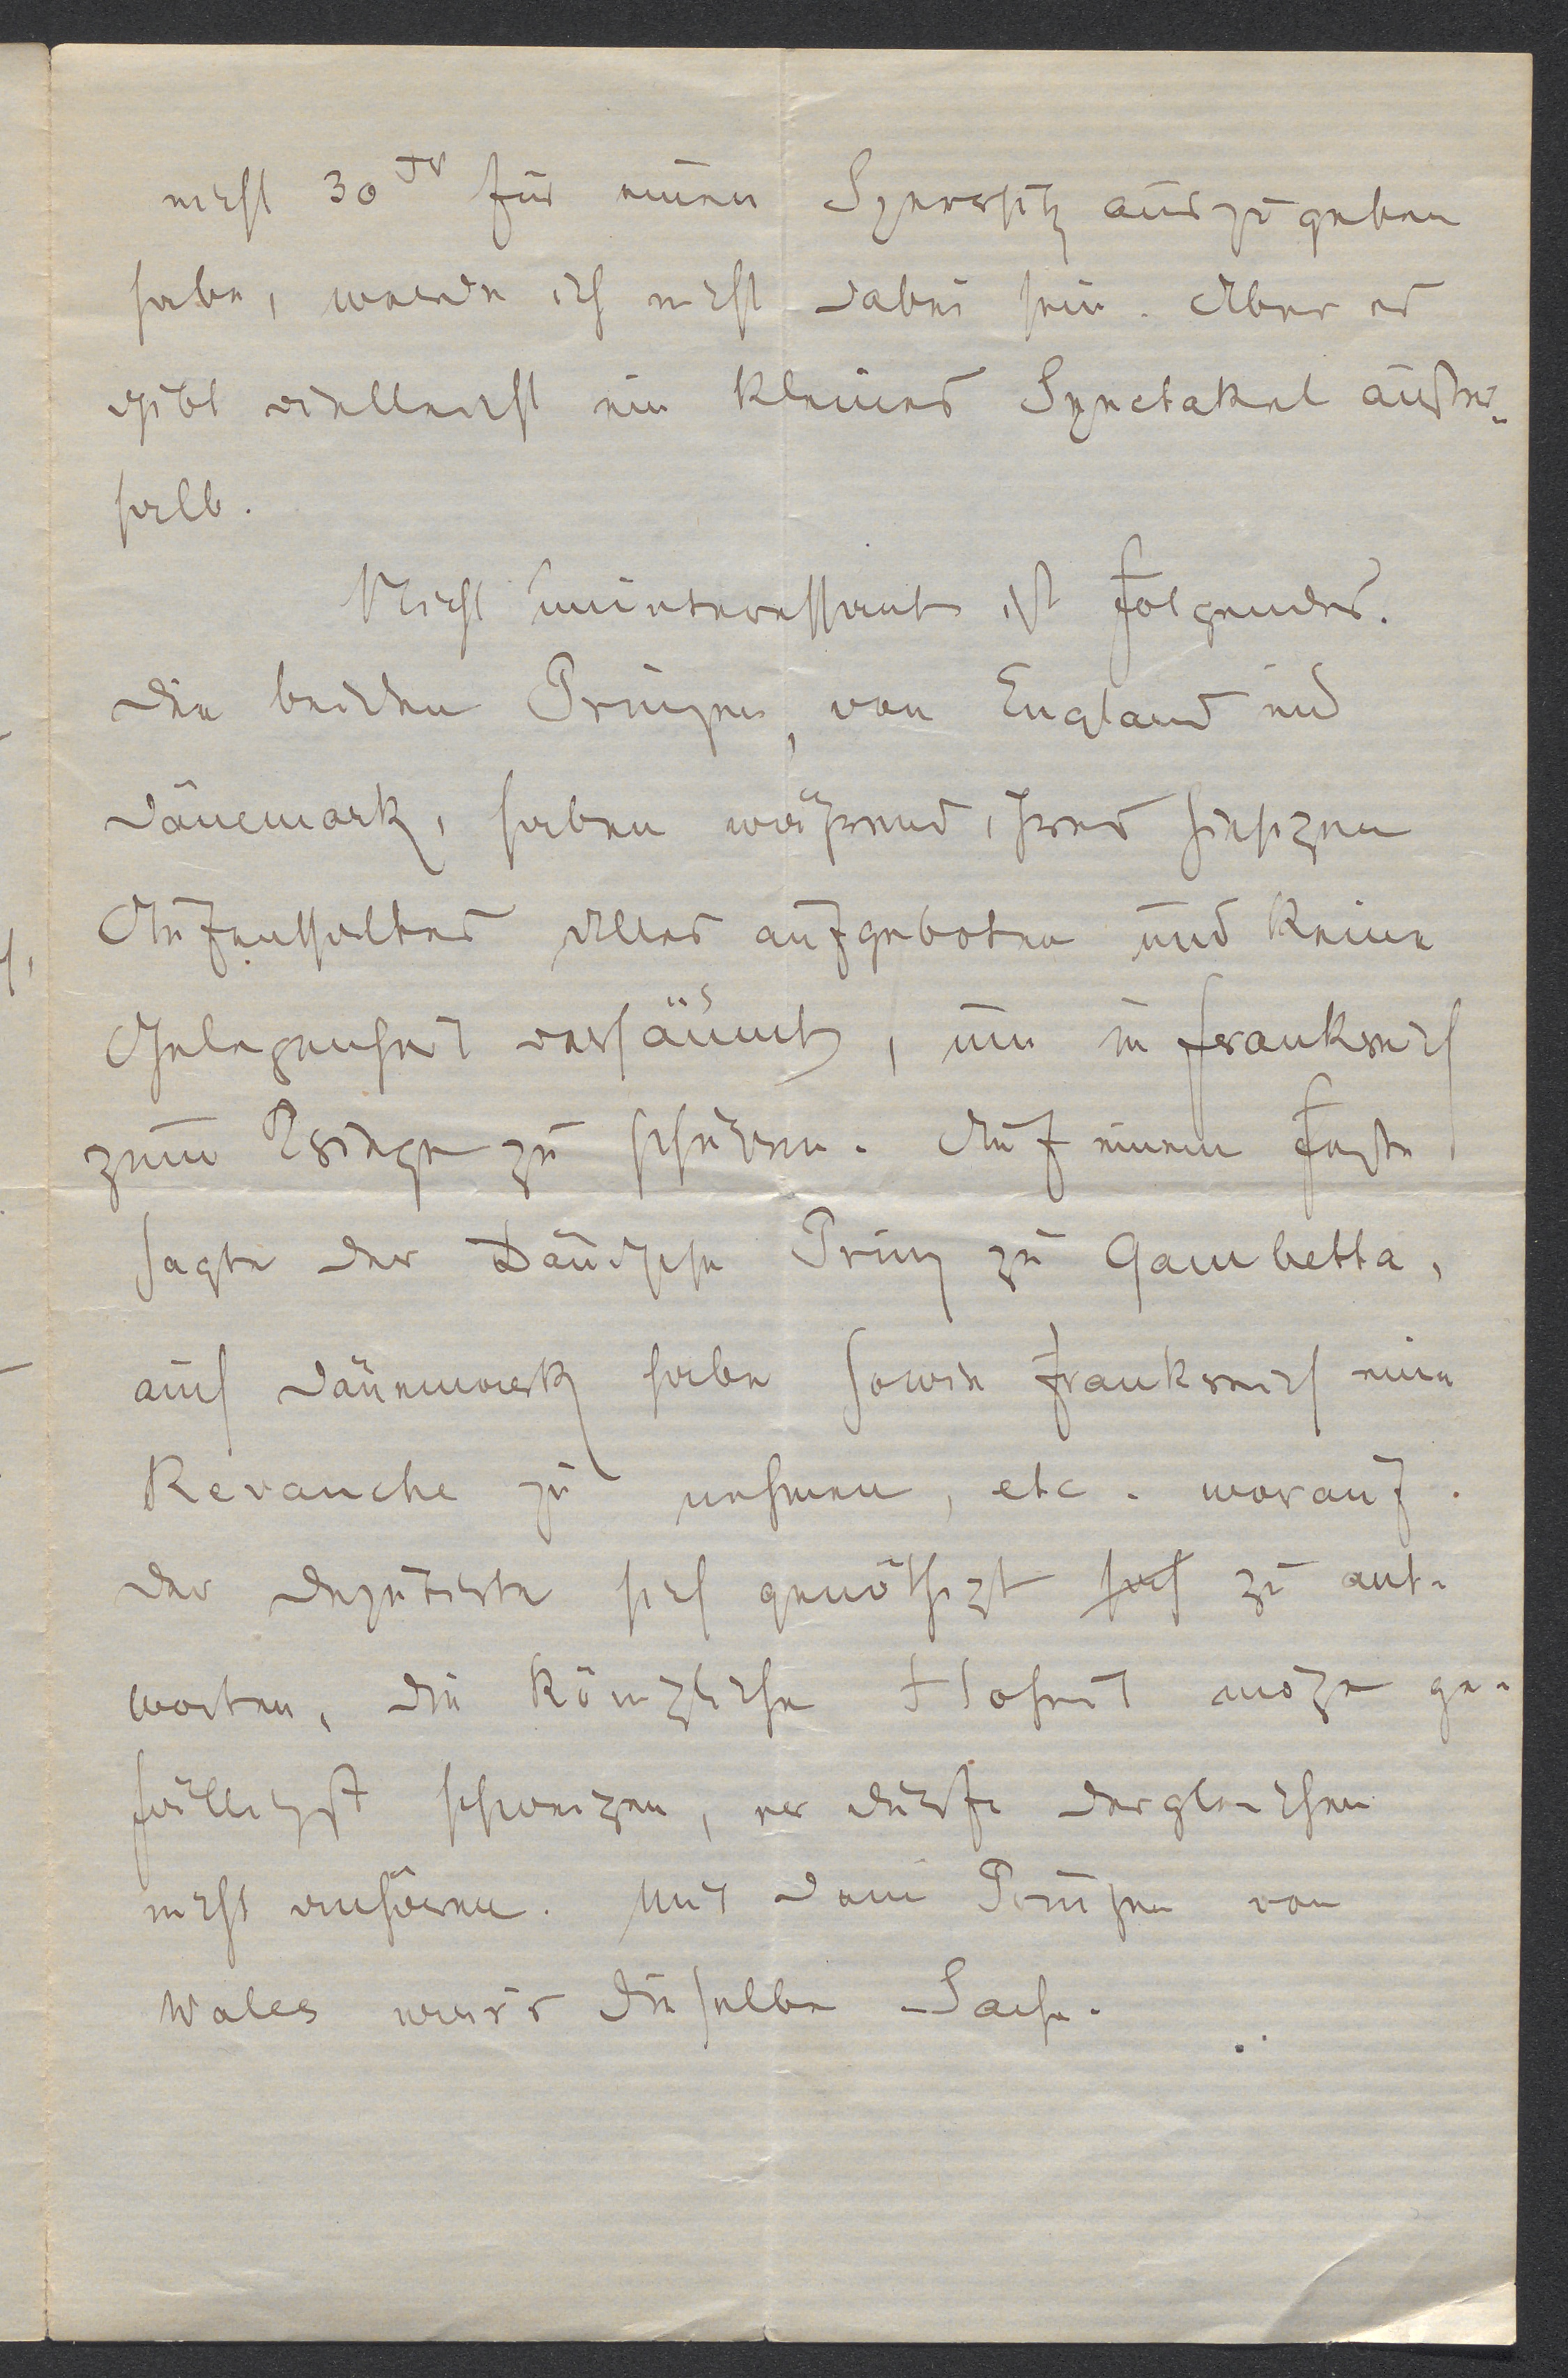 nicht 30 fr für einen Sperrsitz auszugeben
habe, werde ich nicht dabei sein. Aber es
gibt vielleicht ein kleines Spectakel außer-
halb.
Nicht uninteressant ist folgendes.
Die beiden Prinzen, von England und
Dänemark, haben während ihres hiesigen
Aufenthaltes Alles aufgeboten und keine
Gelegenheit versäumt, um in Frankreich
zum Kriege zu schüren. Auf einem Feste
sagte der Dänische Prinz zu Gambetta,
auch Dänemark habe sowie Frankreich eine
Revanche zu nehmen, etc. worauf
der Deputirte sich genöthigt sah zu ant-
worten, die Königliche Hoheit möge ge-
fälligst schweigen, er dürfe dergleichen
nicht anhören. Mit dem Prinzen von
Wales war's dieselbe Sache.